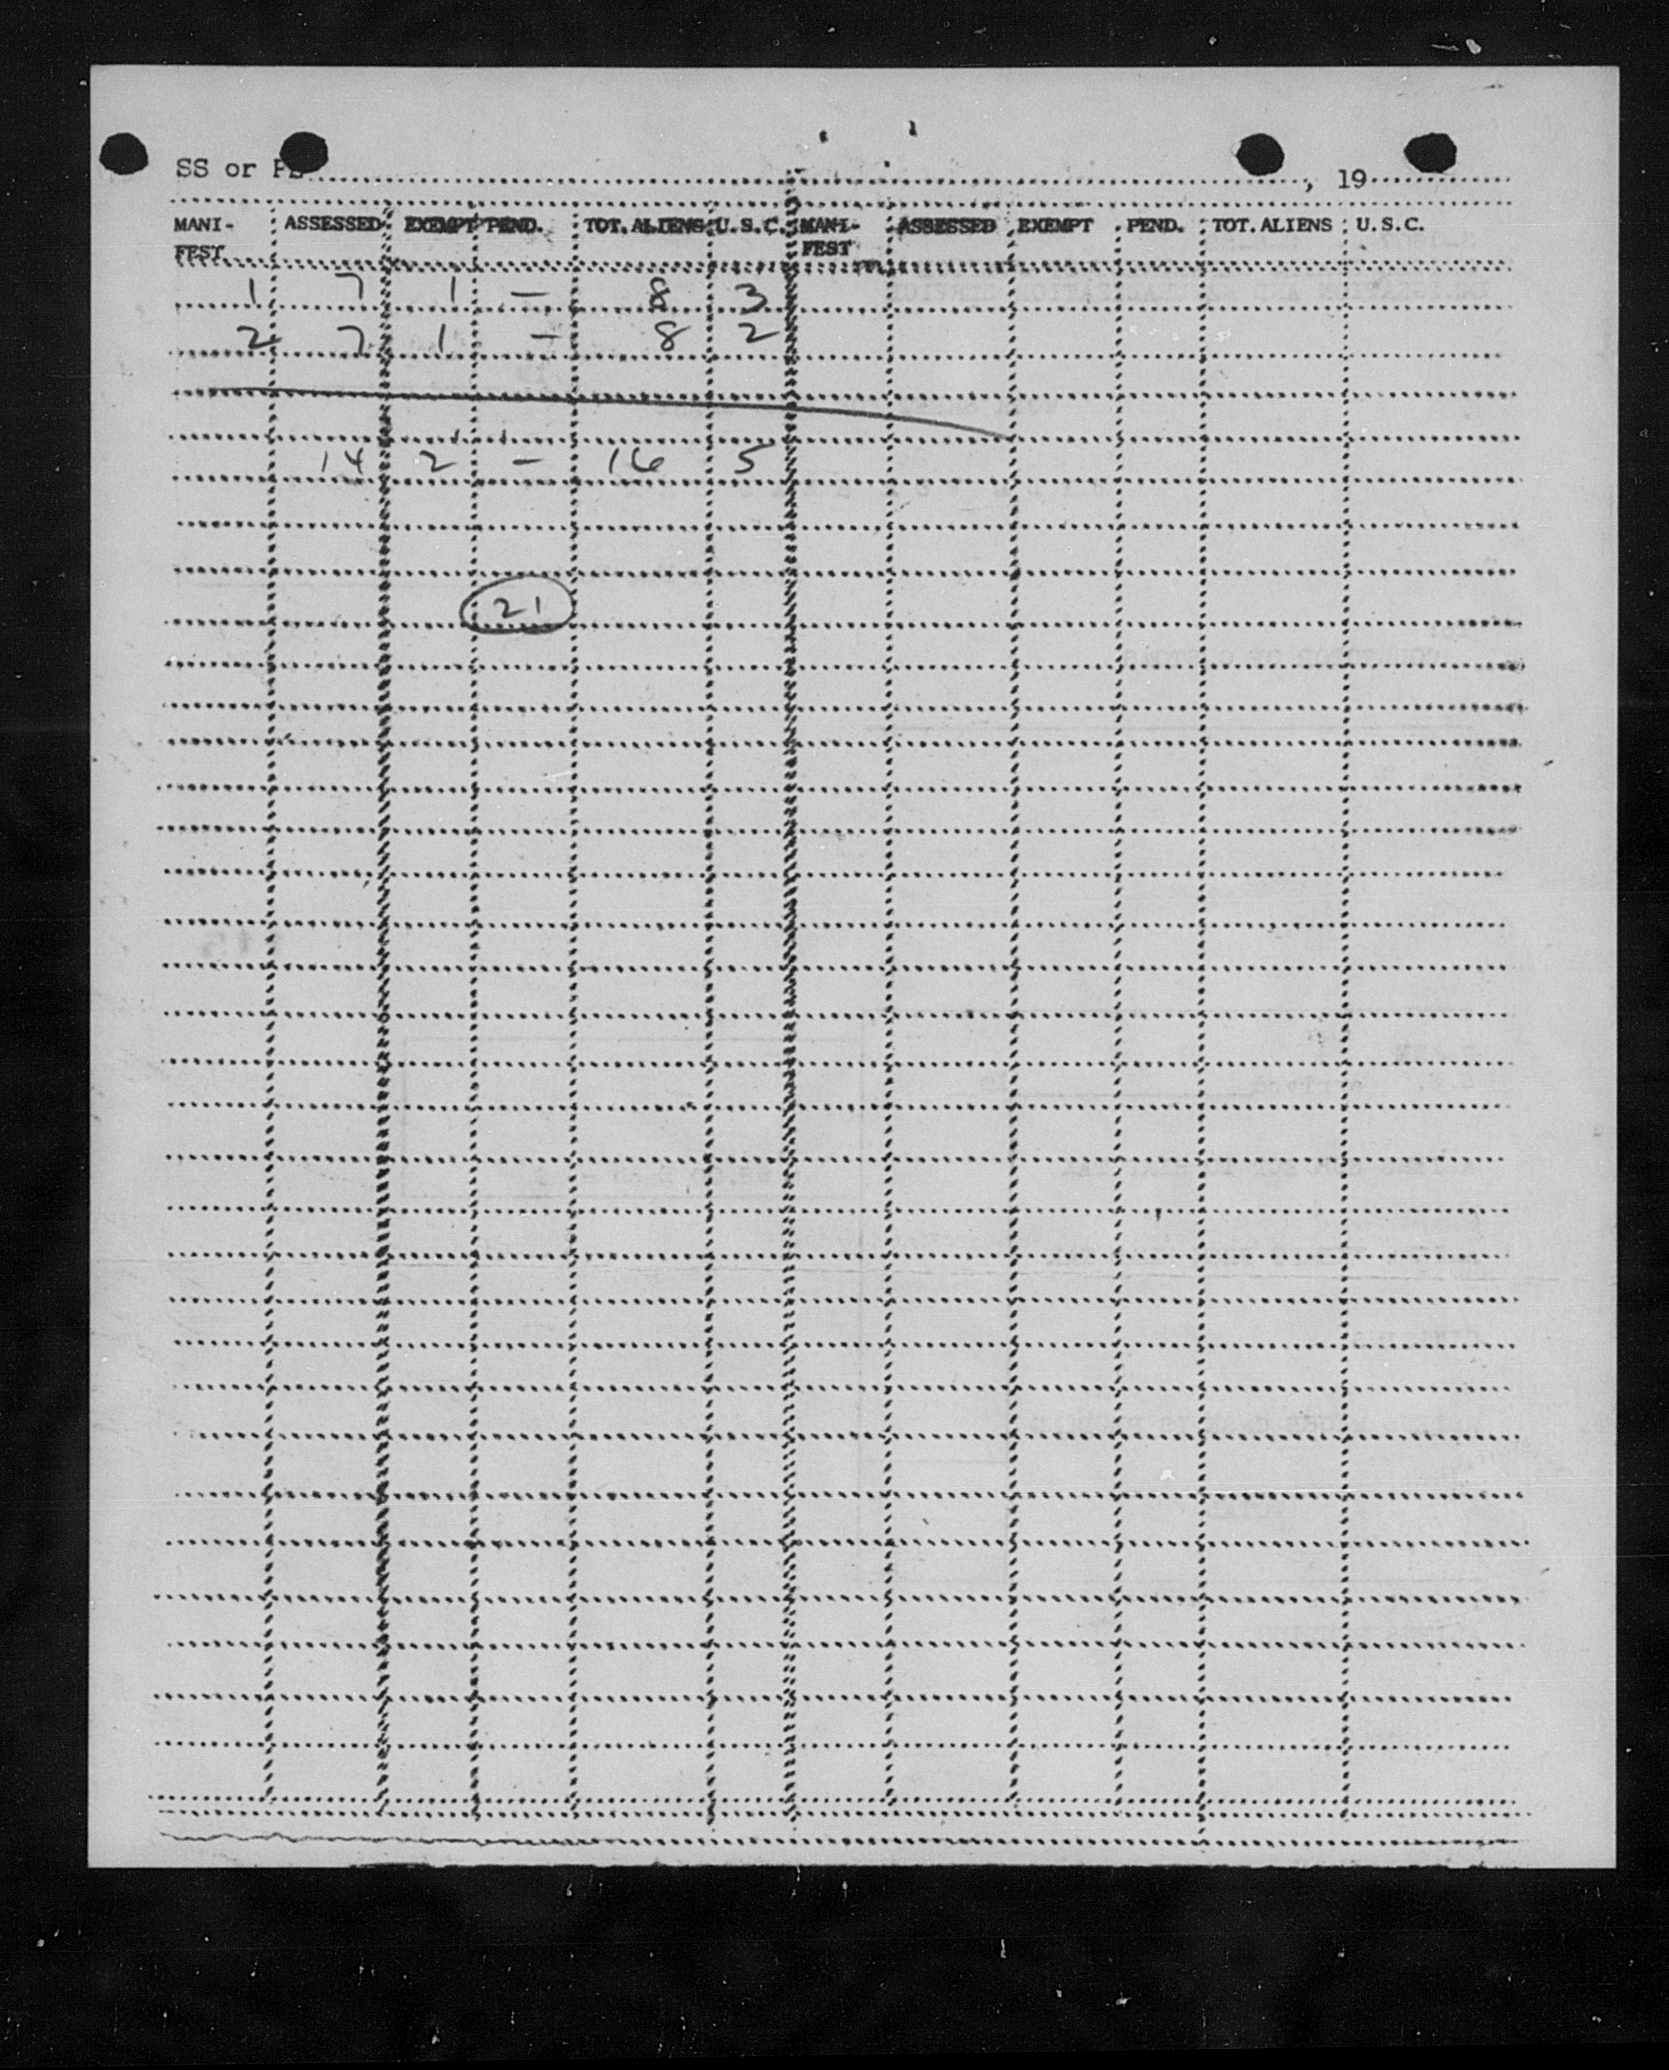 SS or , 19
MANI- ASSESSED EXEMPT PEND. TOT. ALIENS U.S.C. MANI- ASSESSED EXEMPT PEND. TOT. ALIENS U.S.C.
FEST FEST
1 7 1 - 8 3
2 7 1 - 8 2
14 2 - 16 5
21